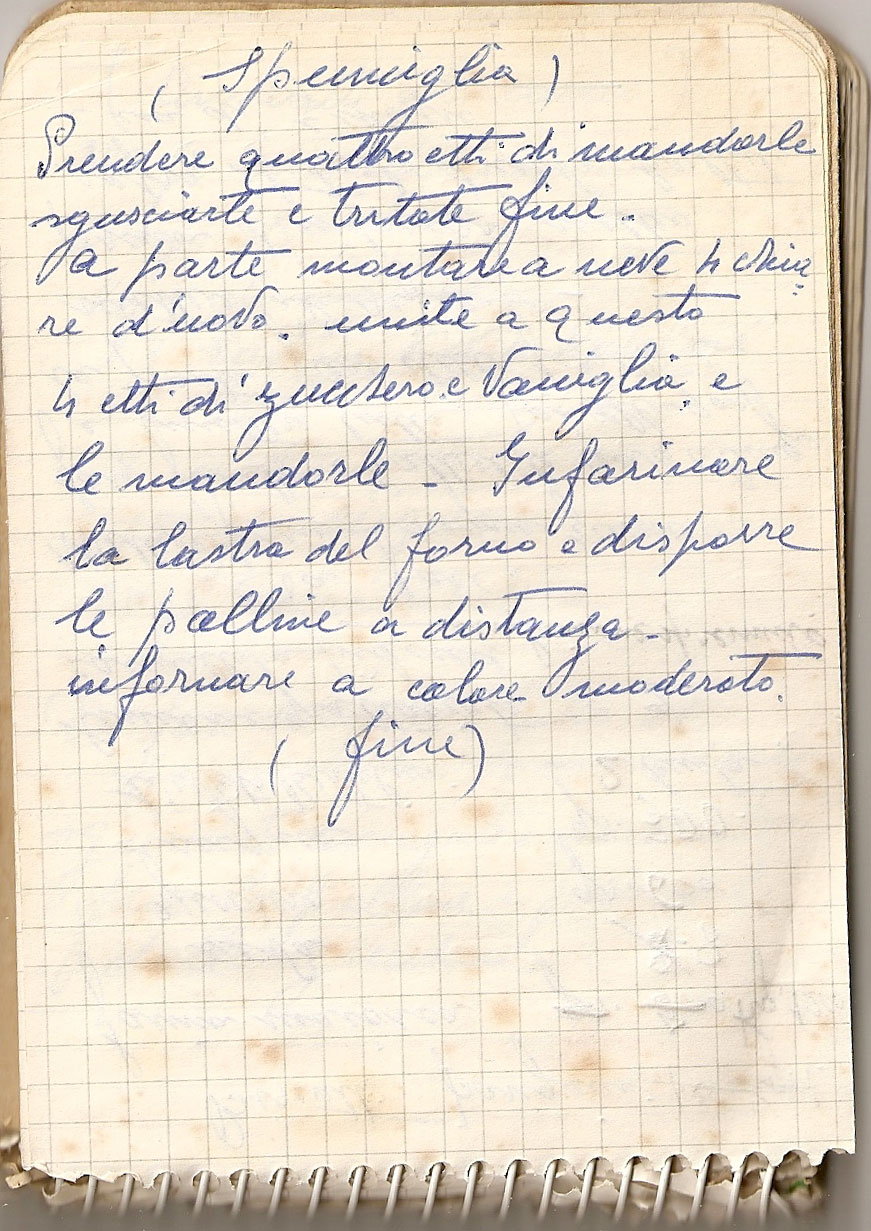 ( Spumiglia )
Prendere quattro etti di mandorle
sgusciate e tritate fine.
A parte montare a neve 4 chia
re d'uovo. unite a questo
4 etti di zucchero e Vaniglia e
le mandorle - Infarinare
la lastra del forno e disporre
le palline a distanza -
infornare a calore moderato.
( fine )